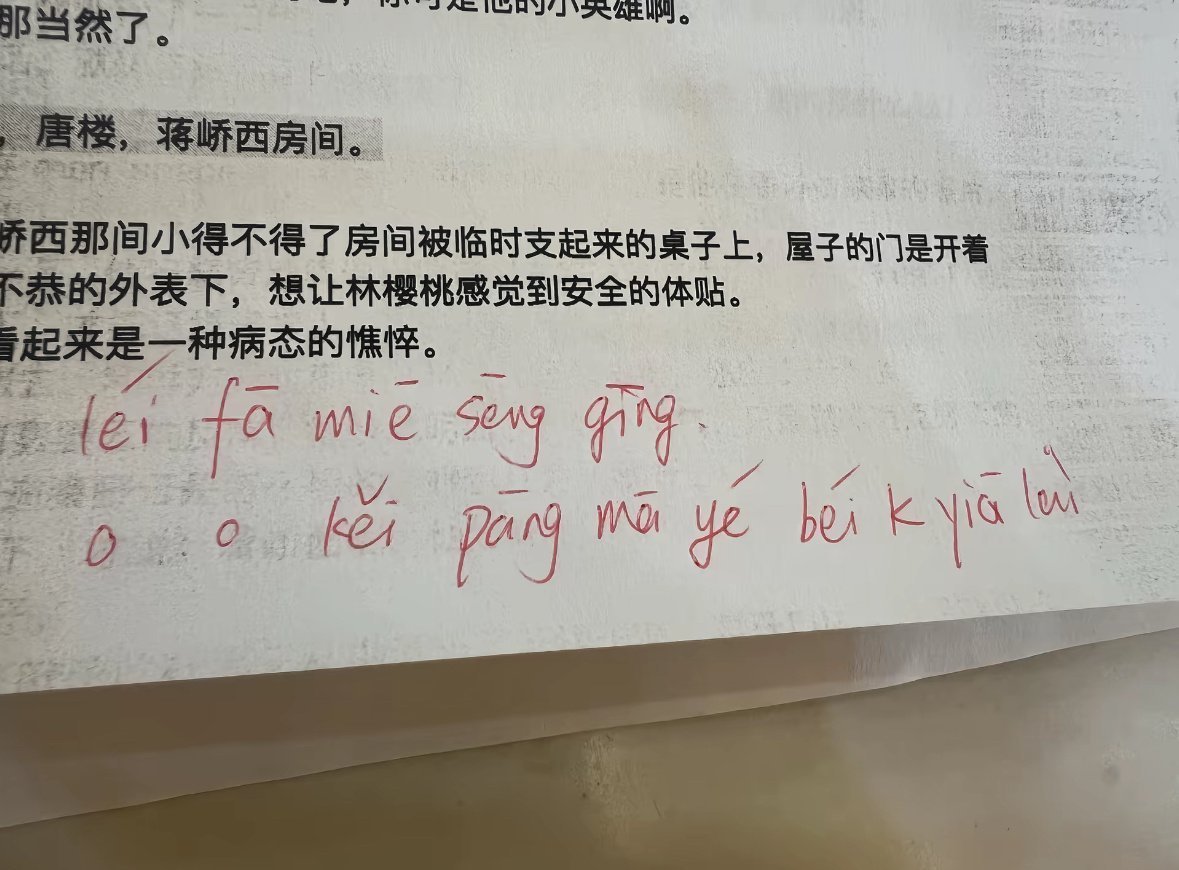 你可是他的小英雄啊。
那当然了。
，唐楼，蒋峤西房间。
峤西那间小得不得了房间被临时支起来的桌子上，屋子的门是开着
不恭的外表下，想让林樱桃感觉到安全的体贴。
看起来是一种病态的憔悴。
léi fā miē sēng gīng.
o o kěi pāng mā yé béi k yiā lài